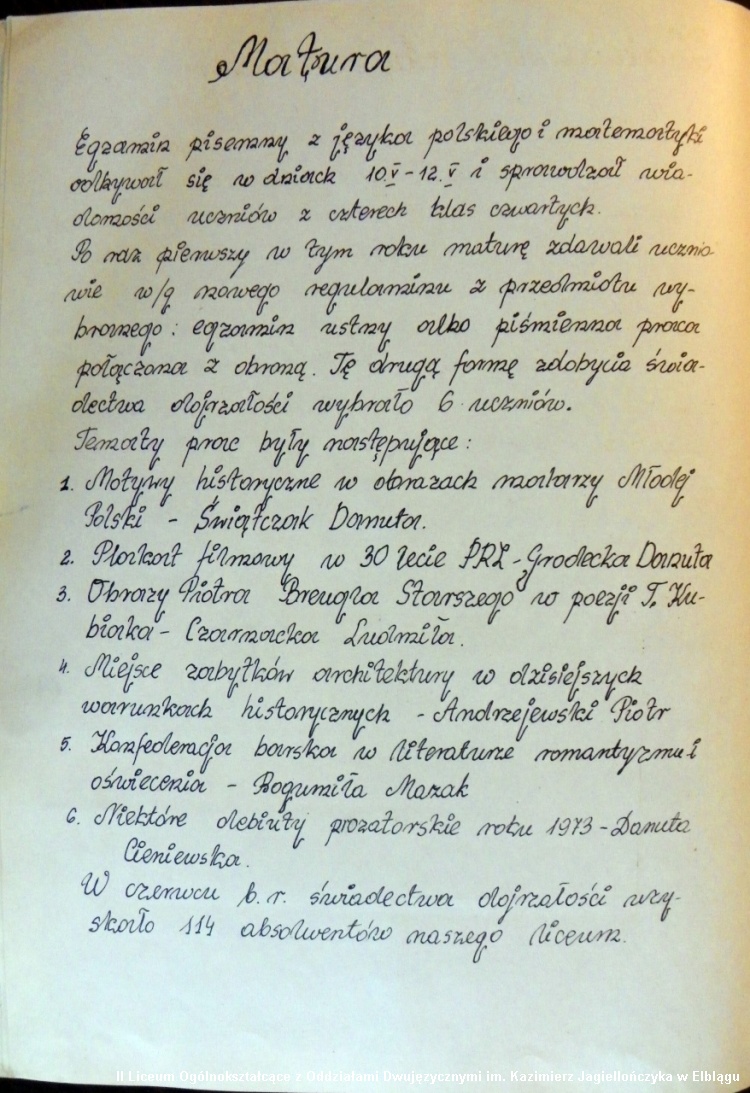 Matura
Egzamin pisemny z języka polskiego i matematyki
odbywał się w dniach 10.V-12.V i sprawdzał wia-
domości uczniów z czterech klas czwartych.
Po raz pierwszy w tym roku maturę zdawali ucznio
wie w/g nowego regulaminu z przedmiotu wy-
branego: egzamin ustny albo piśmienna praca
połączona z obroną. Tę drugą formę zdobycia świa-
dectwa dojrzałości wybrało 6 uczniów.
Tematy prac były następujące:
1. Motywy historyczne w obrazach malarzy Młodej
Polski - Świątczak Danuta.
2. Plakat filmowy w 30 lecie PRL - Grodecka Danuta
3. Obrazy Piotra Breugla Starszego w poezji T. Ku-
biaka - Czarnacka Ludmiła.
4. Miejsce zabytków architektury w dzisiejszych
warunkach historycznych - Andrzejewski Piotr
5. Konfederacja barska w literaturze romantyzmu i
oświecenia - Bogumiła Mazak
6. Niektóre debiuty prozatorskie roku 1973 - Danuta
Cieniewska.
W czerwcu b.r. świadectwa dojrzałości uzy-
skało 114 absolwentów naszego liceum.
II Liceum Ogólnokształcące z Oddziałami Dwujęzycznymi im. Kazimierz Jagiellończyka w Elblągu